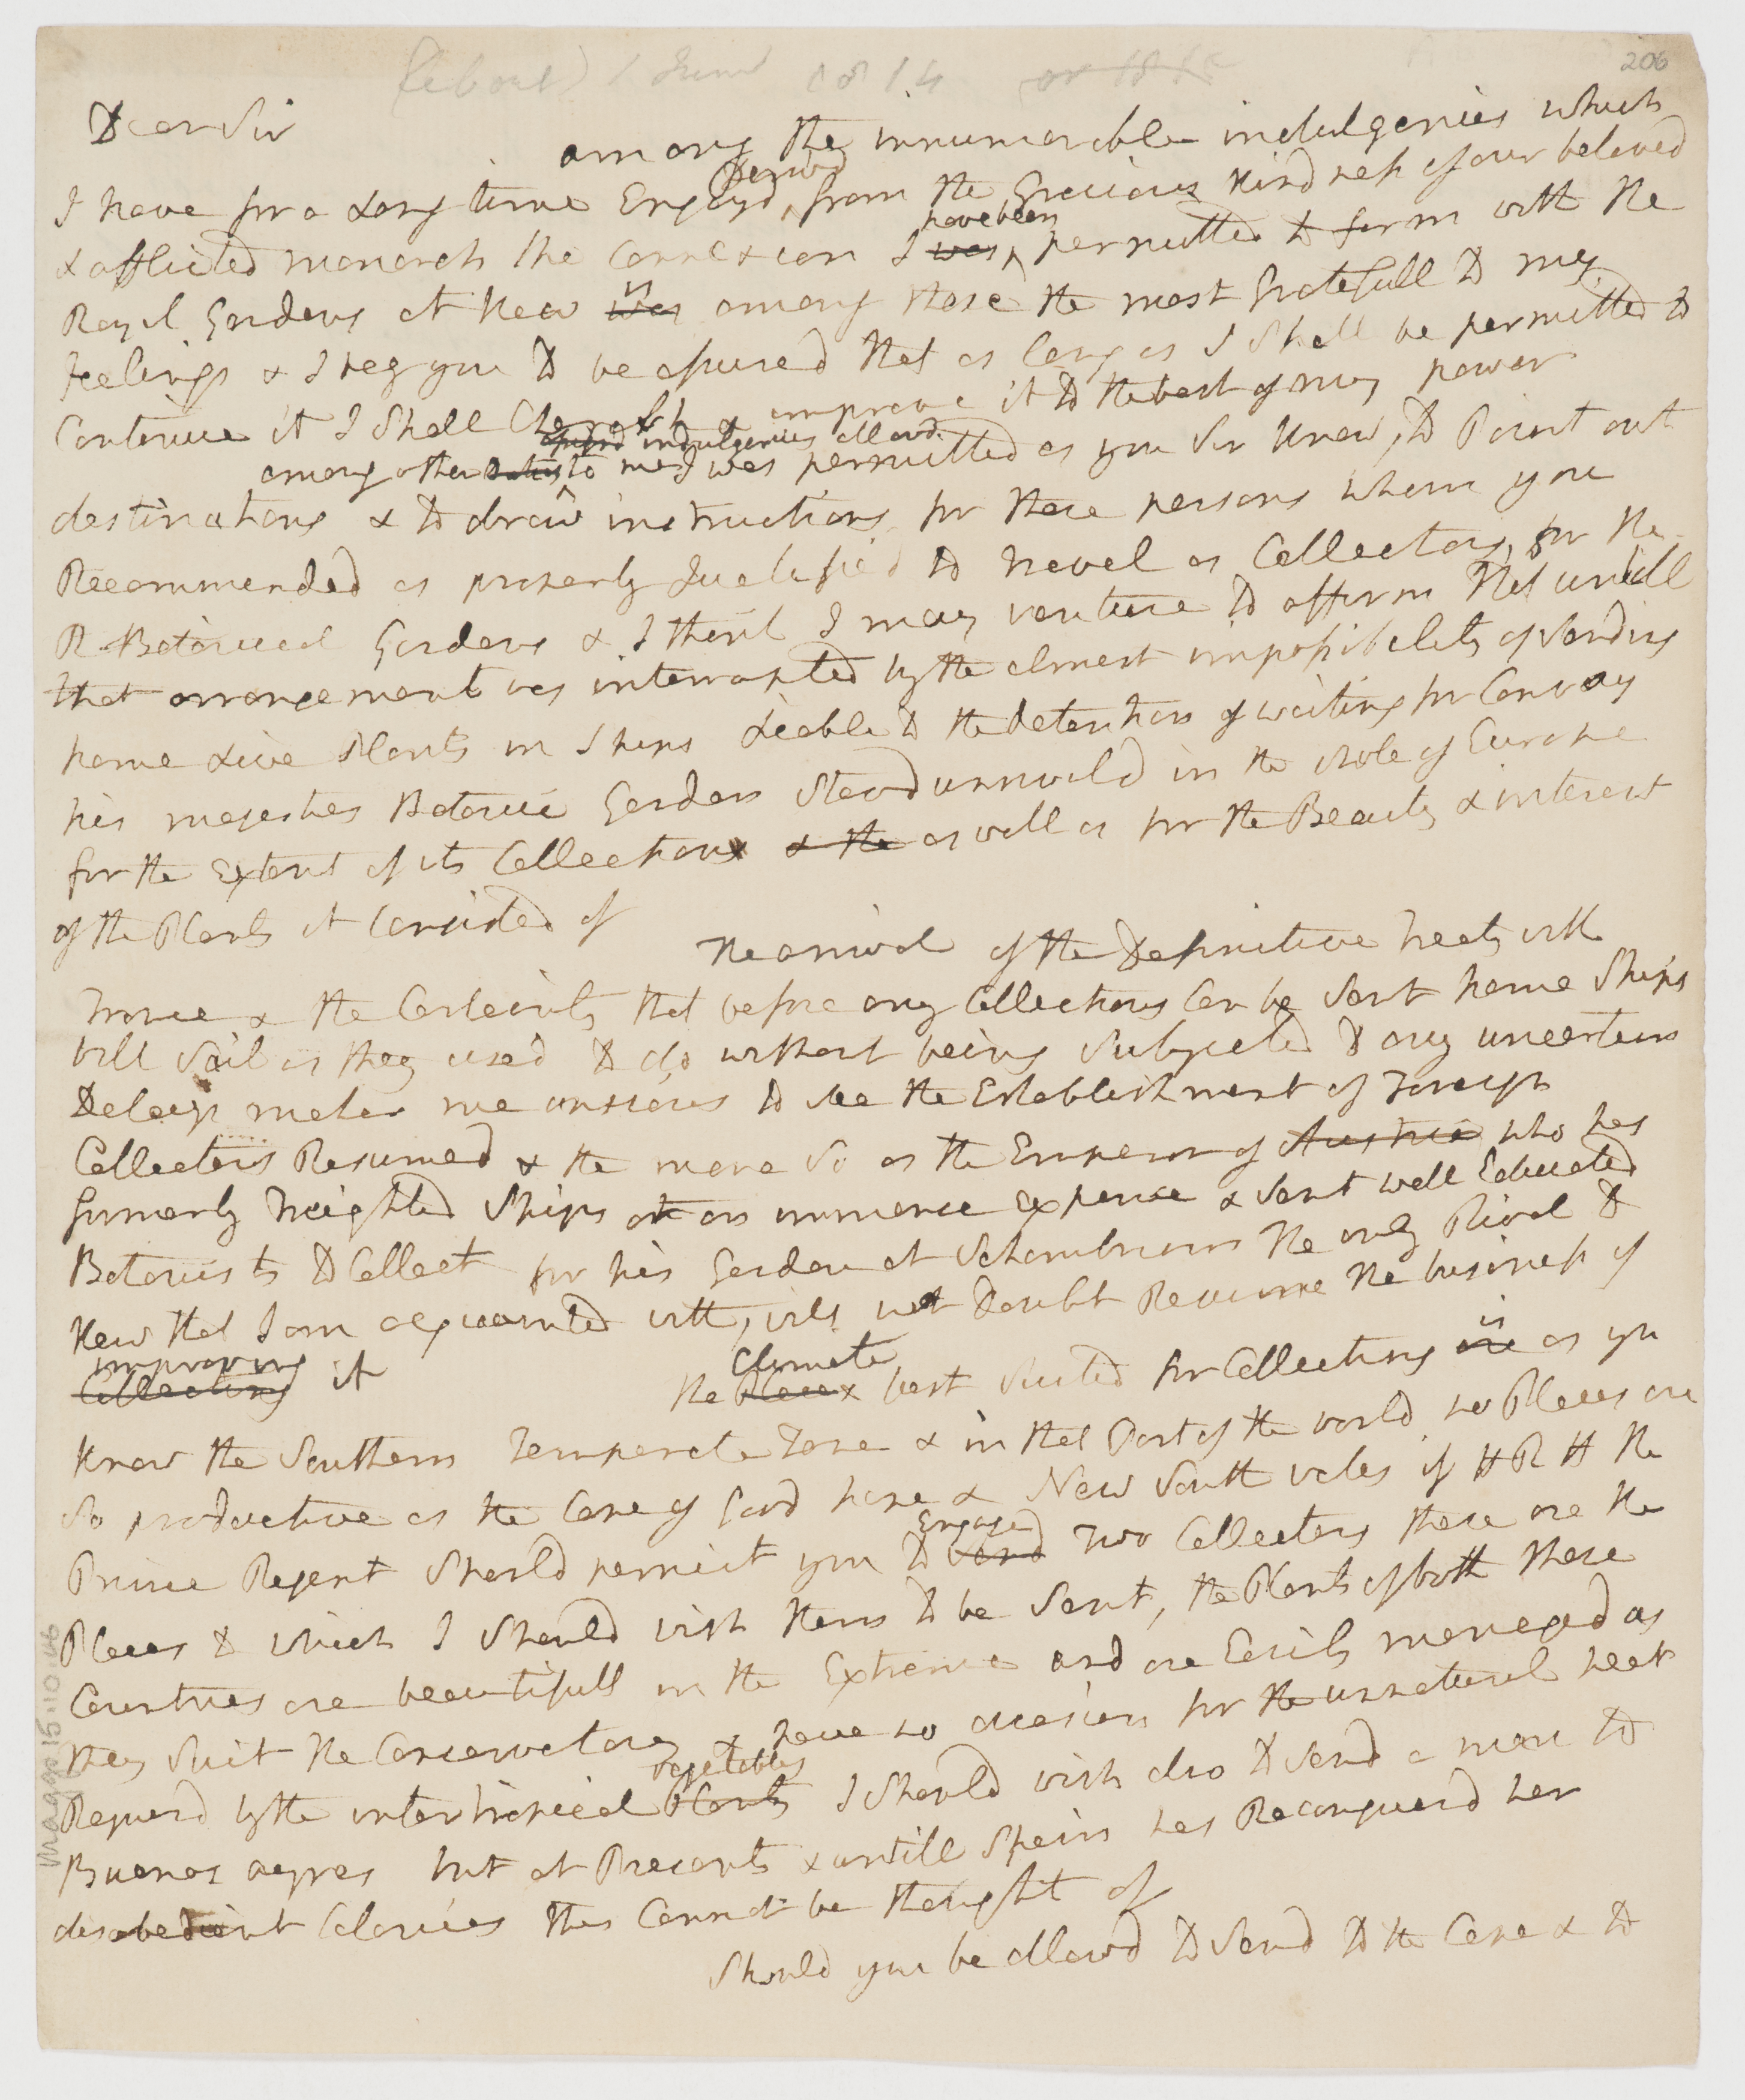 206
(about) 1 June 1814 or 1815
Dear Sir
among the innumerable indulgencies which
I have for a Long time Enjoyd, derivd from the Gracious Kindness of our beloved
& afflicted monarch the Connexion I was have been permitted to form with the
Royal Gardens at Kew was is among those the most Gratefull to my
Feelings & I beg you to be assured that as Long as I Shall be permitted to
Continue it I Shall Cherish & improve it to the best of my power
among other indulgencies allowd to me I was permitted as you Sir Know, to Point out
destinations & to draw instructions for those persons whom you
Recommended as properly Qualified to travel as Collectors for the
R Botanical Gardens & I think I may venture to affirm that untill
that arrangement was interrupted by the almost impossibility of Sending
home Live Plants in Ships Leable to the detention of waiting for Convoy
his majesties Botanic Garden Stood unrivald in the whole of Europe
for the Extent of its Collections & the as well as for the Beauty & interest
of the Plants it Consisted of
the arrival of the Definitive treaty with
France & the Certainty that before any Collections Can be Sent home Ships
will Sail as they used to do without being Subjected to any uncertain
Delays makes me anxious to see the Establishment of Foreign
Collectors Resumed & the more So as the Emperor of Austria who has
formerly Freighted Ships at an immence Expence & Sent well Educated
Botanists to Collect for his Garden at Schonbrun the only Rival to
Kew that I am acquainted with, will not Doubt Resume the business of
Collecting improving it
the Places Climate best Suited for Collecting are is as you
Know the Southern Temperate Zone & in that Part of the world no Places are
So productive as the Cape of Good hope & New South wales if H R H the
Prince Regent Should permit you to Send Engage Two Collectors these are the
Places to which I Should wish them to be Sent, the Plants of both these
Countries are beautifull in the Extreme and are Easily managed as
they Suit the Conservatory & have no occasion for the unnatural heat
Requird by the intertropical Plants vegetables I Should wish also to Send a man to
Buenos ayres but at Present & untill Spain has Reconquerd her
disobedient Colonies this Cannot be thought of
Should you be allowd to Send to the Cape & to